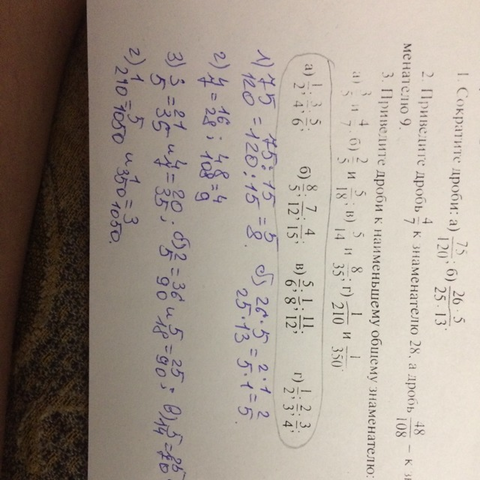 1. Сократите дроби: а) 75/120; б) 26 · 5/25 · 13;
2. Приведите дробь 4/7 к знаменателю 28, а дробь 48/108 – к зна
менателю 9.
3. Приведите дроби к наименьшему общему знаменателю:
а) 3/5 и 4/7; б) 2/5 и 5/18; в) 5/14 и 8/35; г) 1/210 и 1/350.
а) 1/2; 3/4; 5/6; б) 8/5; 7/12; 4/15; в) 5/6; 1/8; 11/12; г) 1/2; 2/3; 3/4;
1) 75/120 = 75:15/120:15 = 5/8. б) 26·5/25·13 = 2·1/5·1 = 2/5.
2) 4/7 = 16/28; 48/108 = 4/9
3) 3/5 = 21/35 и 4/7 = 20/35; б) 2/5 = 36/90 и 5/18 = 25/90; в) 5/14 = 25/70
г) 1/210 = 5/1050 и 1/350 = 3/1050.